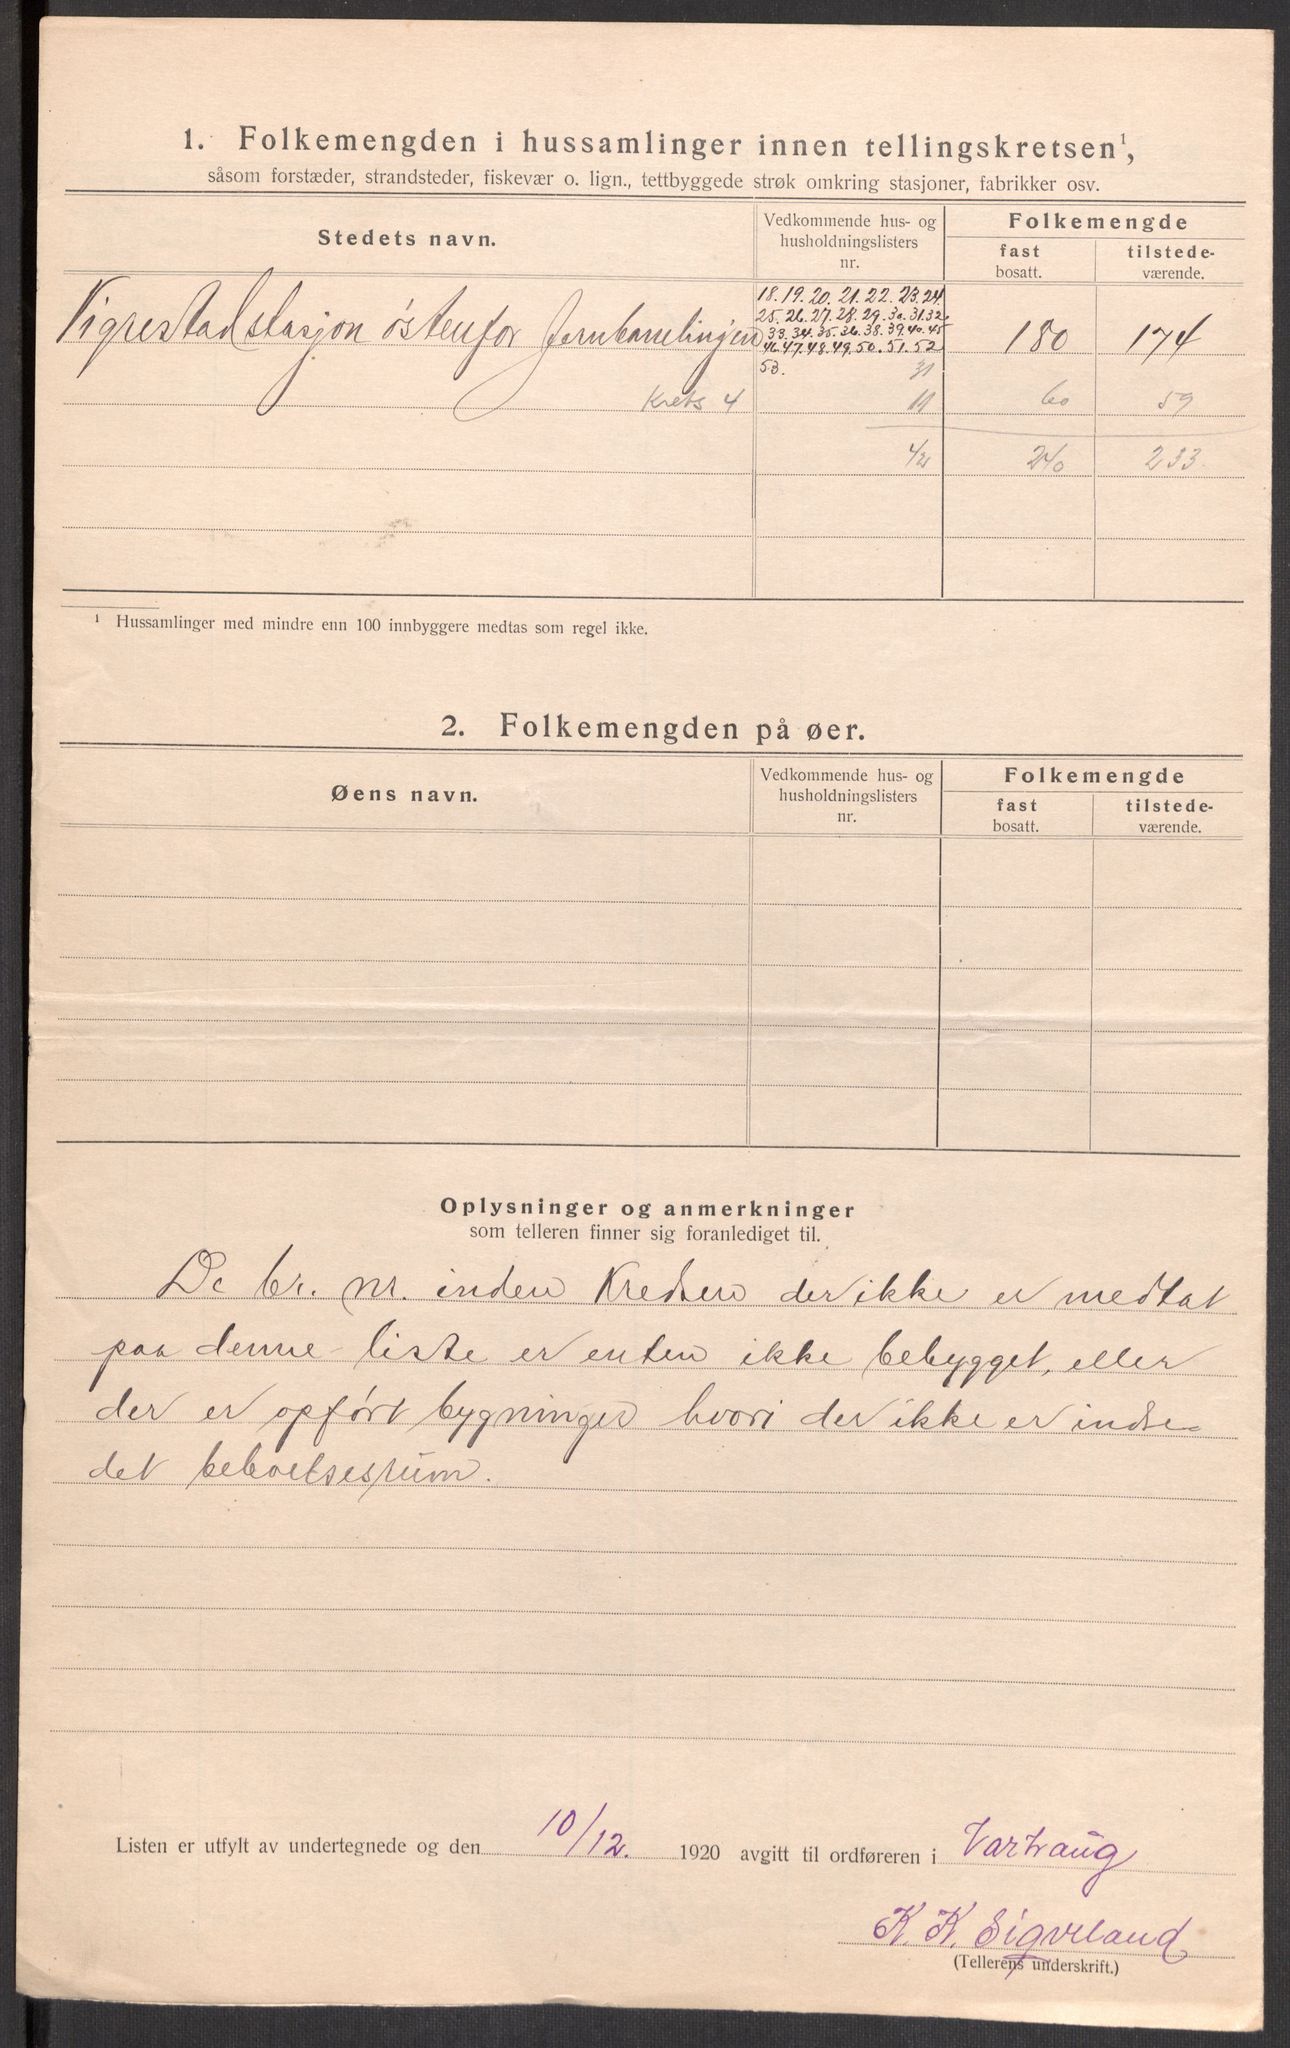 1. Folkemengden i hussamlinger innen tellingskretsen¹,
såsom forstæder, strandsteder, fiskevær o. lign., tettbyggede strøk omkring stasjoner, fabrikker osv.
Stedets navn.
Vedkommende hus- og
husholdningslisters
nr.
Folkemengde
fast
bosatt.
tilstede-
værende.
Vigrestad stasjon östenfor Jernbanelinjen
18. 19. 20. 21. 22. 23. 24
25. 26. 27. 28. 29. 30. 31. 32
33. 34. 35. 36. 38. 39. 40. 45
46. 47. 48. 49. 50. 51. 52
53.
180
174
31
Krets 4
11
60
59
42
240
233
¹ Hussamlinger med mindre enn 100 innbyggere medtas som regel ikke.
2. Folkemengden på øer.
Øens navn.
Vedkommende hus- og
husholdningslisters
nr.
Folkemengde
fast
bosatt.
tilstede-
værende.
Oplysninger og anmerkninger
som telleren finner sig foranlediget til.
De br. nr. inden Kredsen der ikke er medtat
paa denne liste er enten ikke bebygget, eller
der er opfört bygninger hvori der ikke er indre-
det beboelsesrum.
Listen er utfylt av undertegnede og den 10/12. 1920 avgitt til ordføreren i Varhaug
K. K. Sigveland
(Tellerens underskrift.)